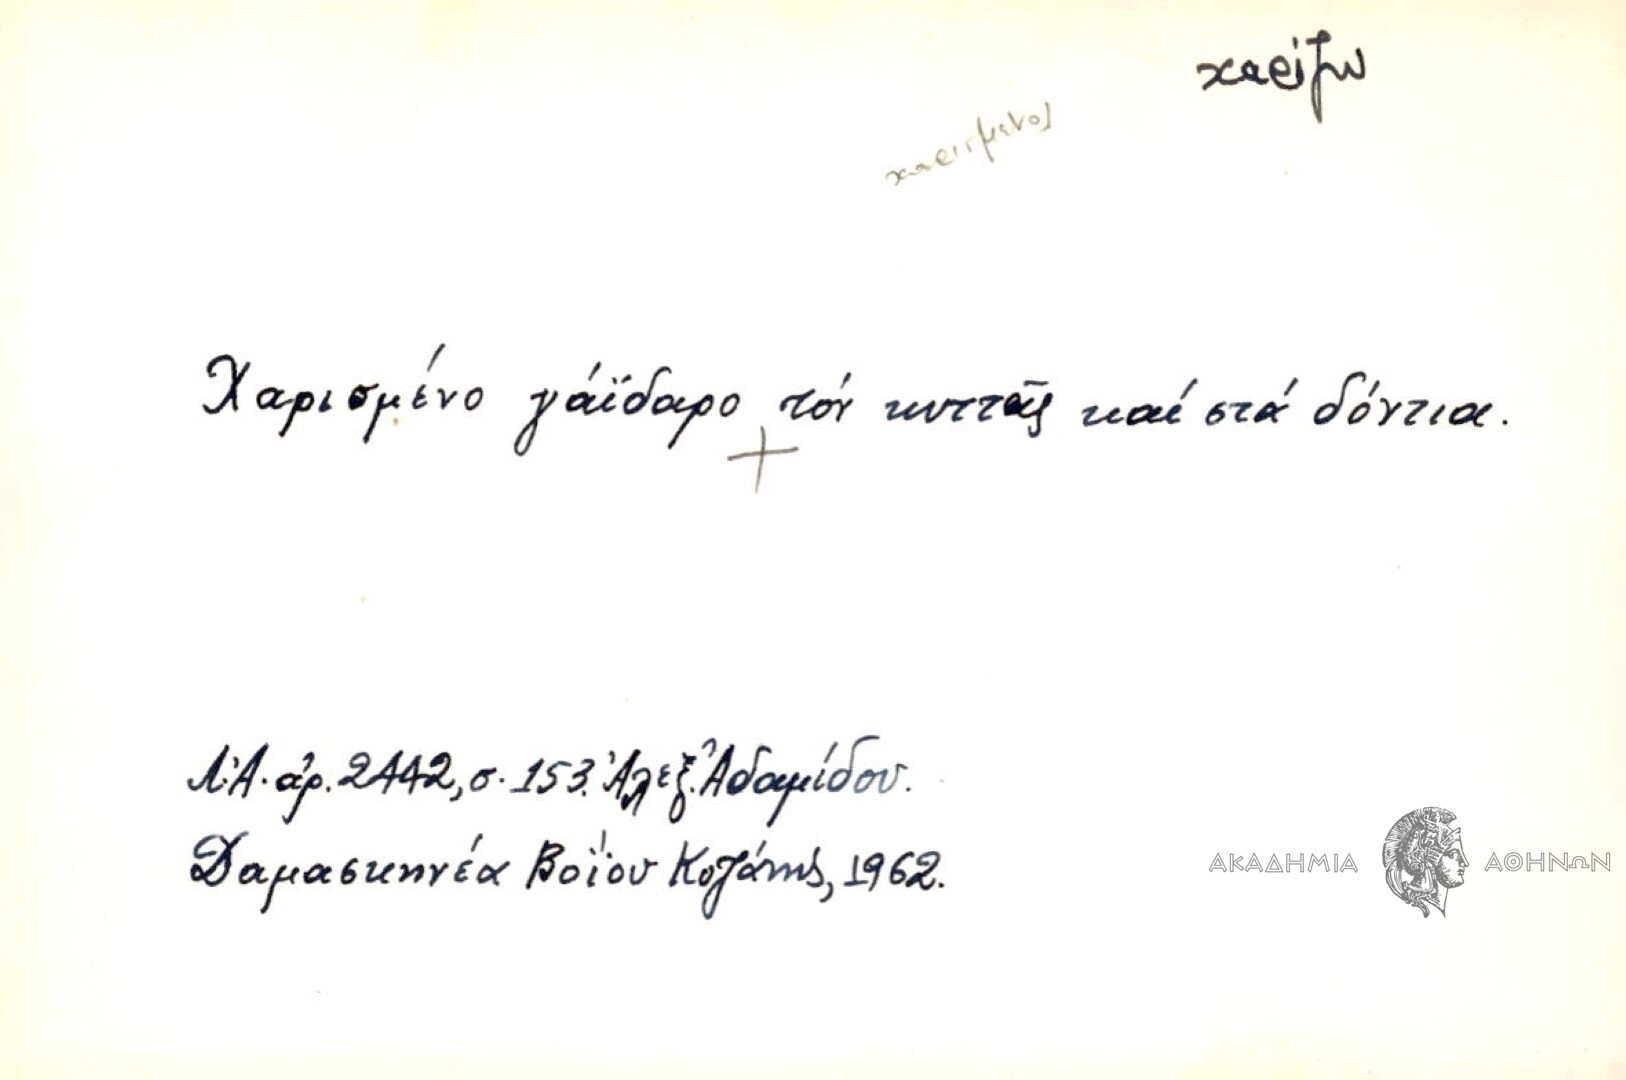 χαρίζω
χαρισμένος
Χαρισμένο γάϊδαρο τόν κυττᾶς καί στά δόντια.
Λ.Ἀ. ἀρ. 2442, σ. 153. Ἀλεξ. Ἀδαμίδου.
Δαμασκηνέα Βοΐου Κοζάνης, 1962.
ΑΚΑΔΗΜΙΑ ΑΘΗΝΩΝ